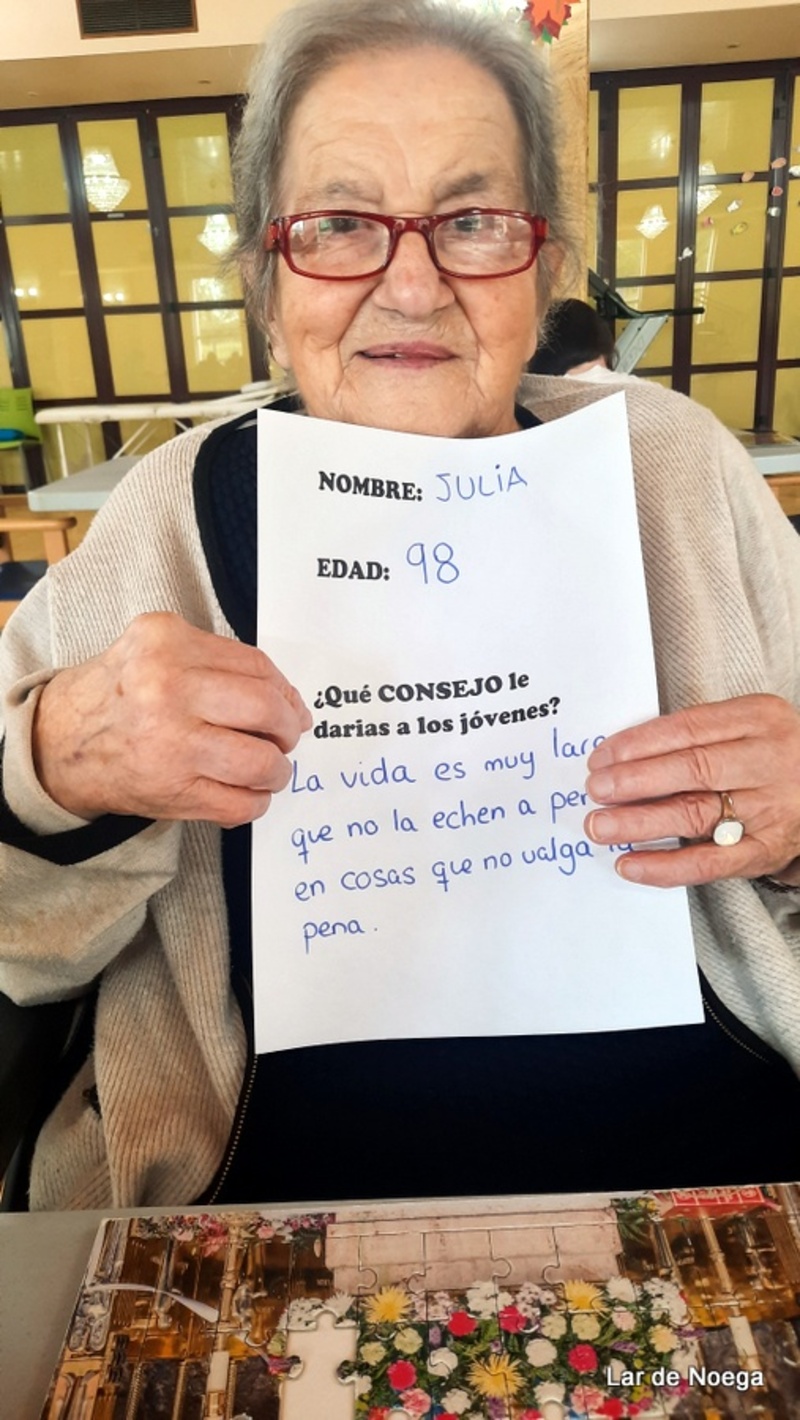 NOMBRE: JULIA
EDAD: 98
¿Qué CONSEJO le
darias a los jóvenes?
La vida es muy
que no la echen a
en cosas que no valga
pena.
Lar de Noega